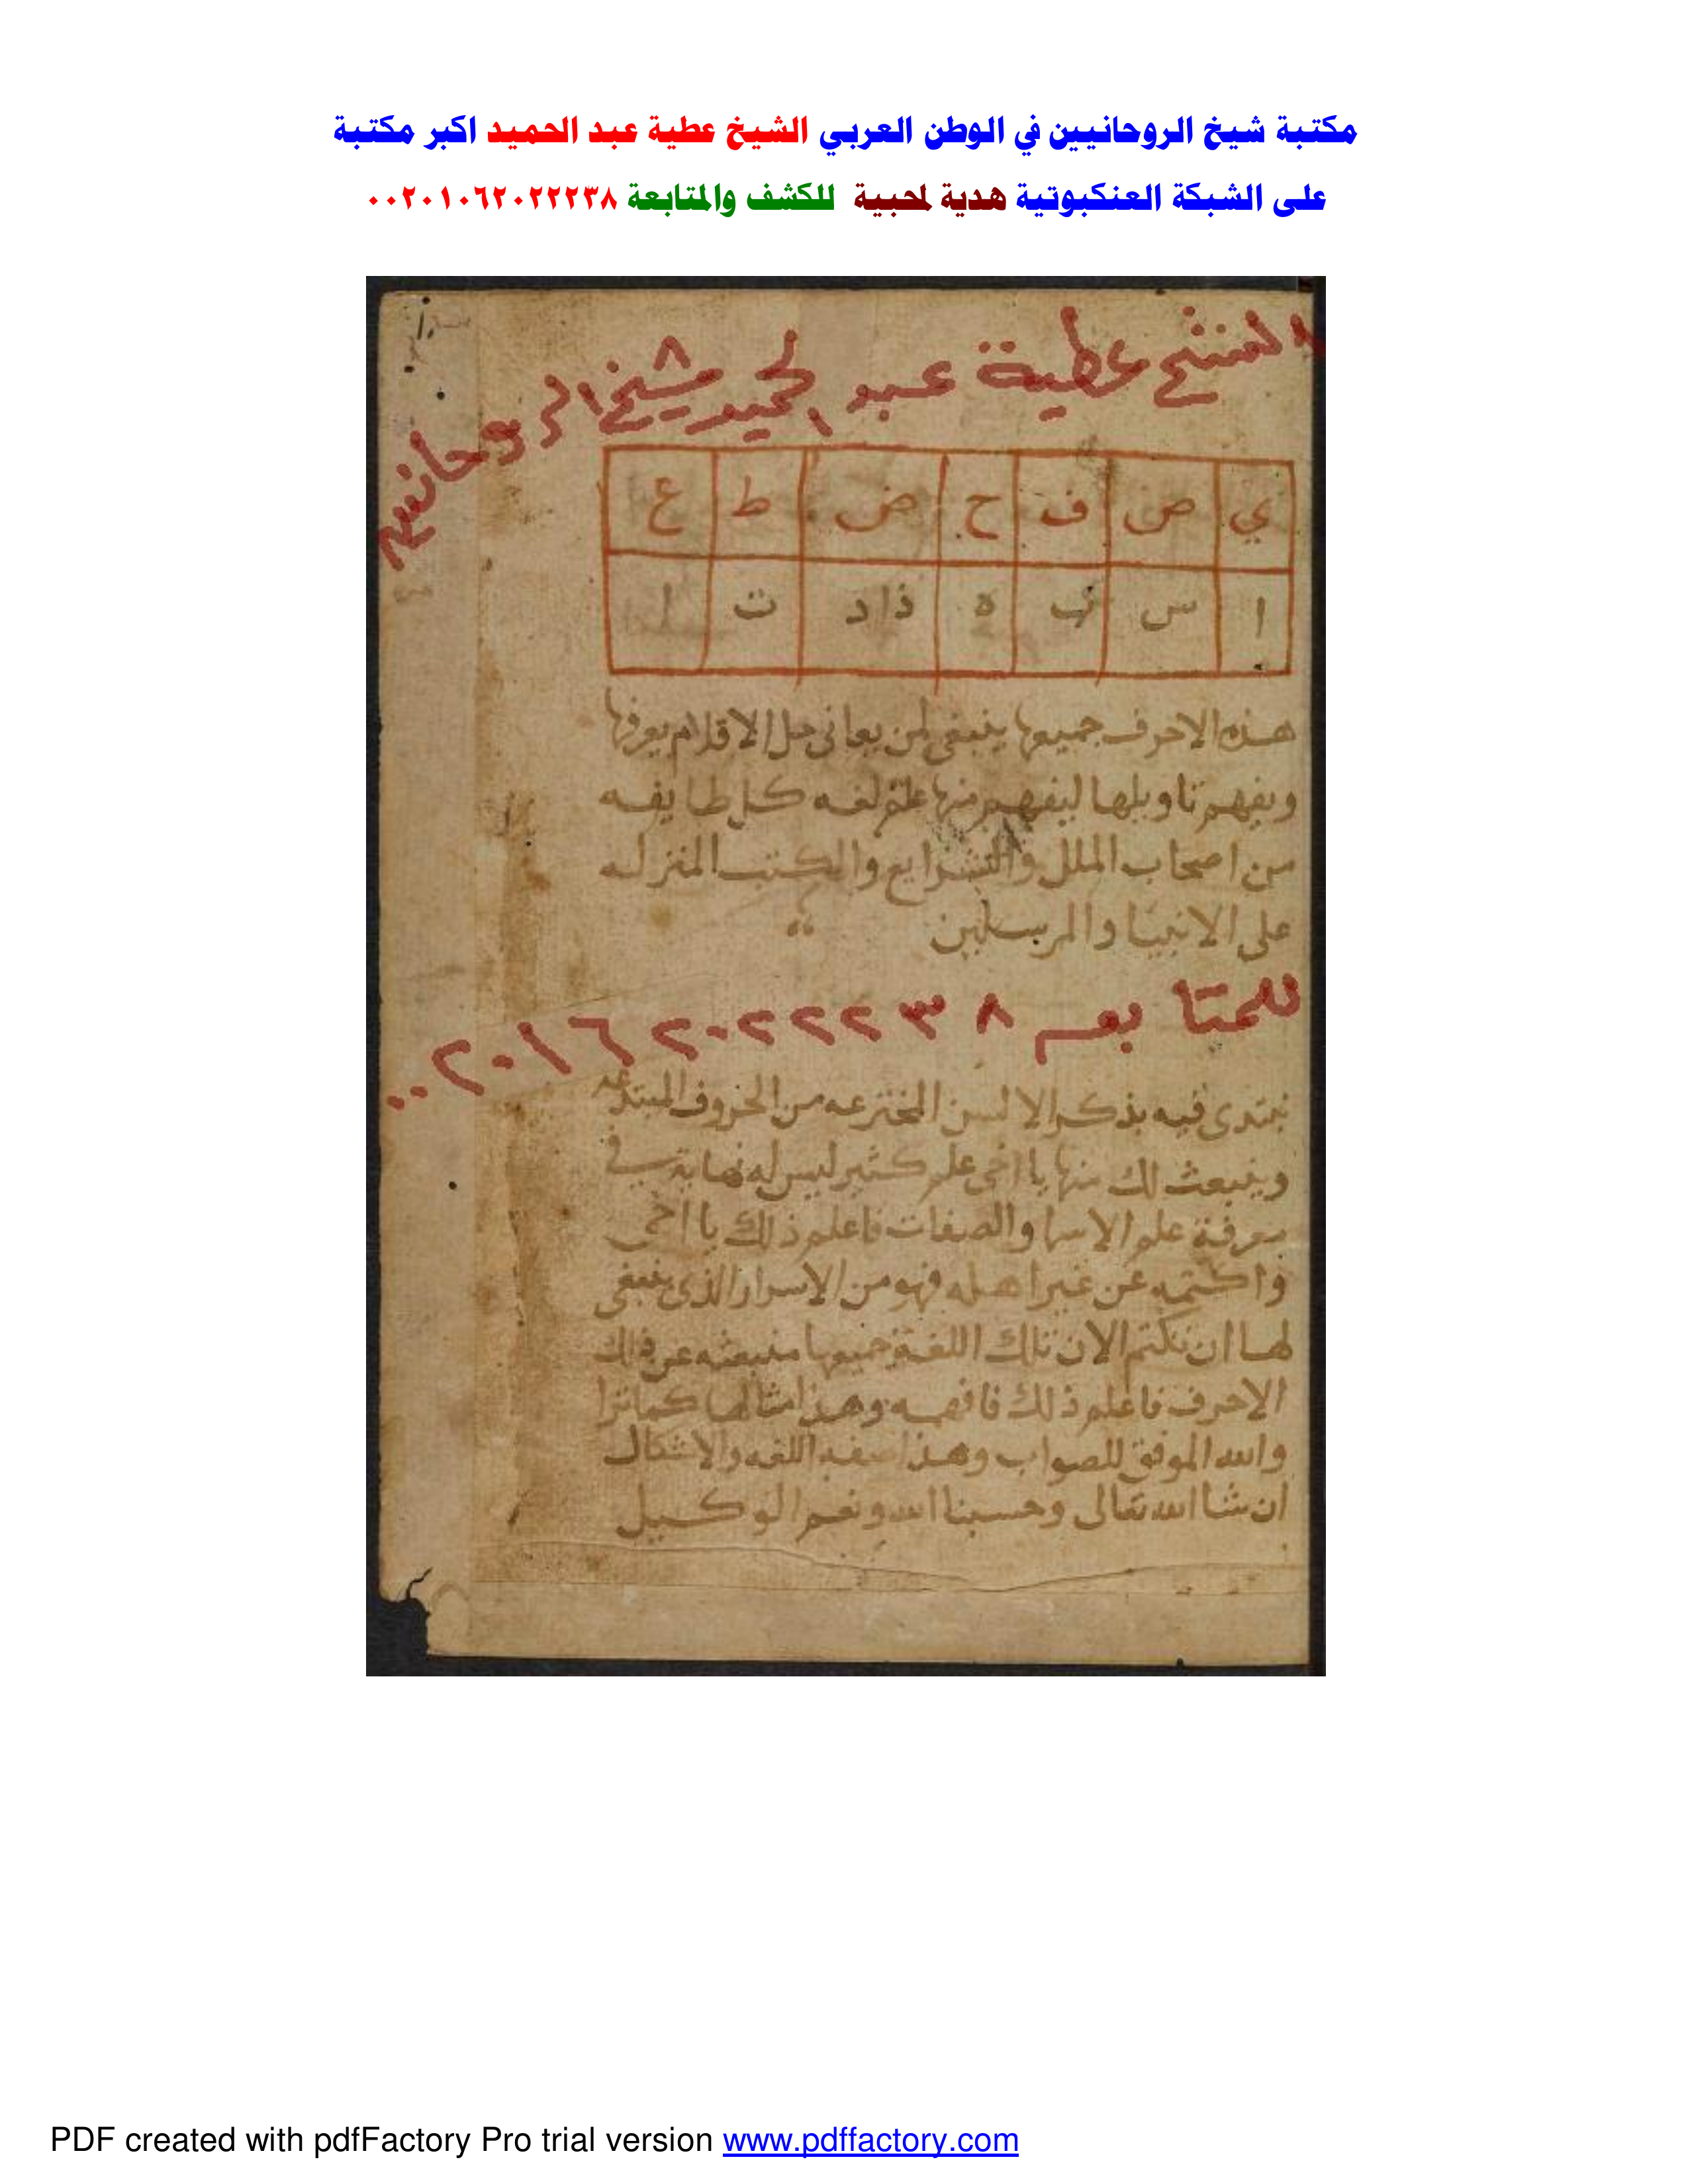 مكتبة شيخ الروحانيين في الوطن العربي الشيخ عطية عبد الحميد اكبر مكتبة
على الشبكة العنكبوتية هدية لمحبية للكشف والمتابعة ٠٠٢٠١٠٦٢٠٢٢٢٣٨
الشيخ عطية عبد الحميد شيخ الروحانيين
ي ص ف ح ض ط ع
ا س ب ه ذاد ت ا
هذه الاحرف جميعها ينبغي لمن يعانى حل الاقلام يعرفها
ويفهم تاويلها ليفهم منها علم لغه كل طايفه
من اصحاب الملل والشرايع والكتب المنزله
على الانبيا والمرسلين
للمتا بعه ٠٠٢٠١٦٢٠٢٢٢٣٨
نبتدى فيه بذكر الالسن المخترعه من الحروف المبتدعه
وينبعث لك منها يا اخى علم كثير ليس له نهاية في
معرفة علم الاسما والصفات فاعلم ذلك يا اخى
واكتمه عن غير اهله فهو من الاسرار الذى ينبغى
لها ان تكتم الان تلك اللغة جميعها منبعثه عن
الاحرف فاعلم ذلك فافهمه وهذا مثالها كما ترا
والله الموفق للصواب وهذا صفه اللغه والاشكال
ان شا الله تعالى وحسبنا الله ونعم الوكيل
PDF created with pdfFactory Pro trial version www.pdffactory.com